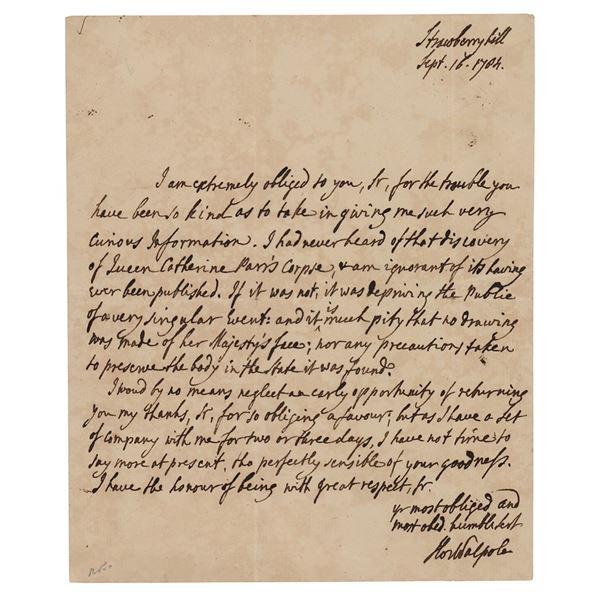 Strawberry hill
Sept. 16. 1784.
I am extremely obliged to you, Sr, for the trouble you
have been so kind as to take in giving me such very
curious Information. I had never heard of that discovery
of Queen Catherine Parr's Corpse, & am ignorant of its having
ever been published. If it was not, it was depriving the Public
of a very singular event: and it is much pity that no drawing
was made of her Majesty's face; nor any precautions taken
to preserve the body in the state it was found.
I woud by no means neglect an early opportunity of returning
you my thanks, Sr, for so obliging a favour; but as I have a set
of company with me for two or three days, I have not time to
say more at present, tho perfectly sensible of your goodness.
I have the honour of being with great respect, Sr.
yr most obliged and
most obed. humble sert
Hor Walpole